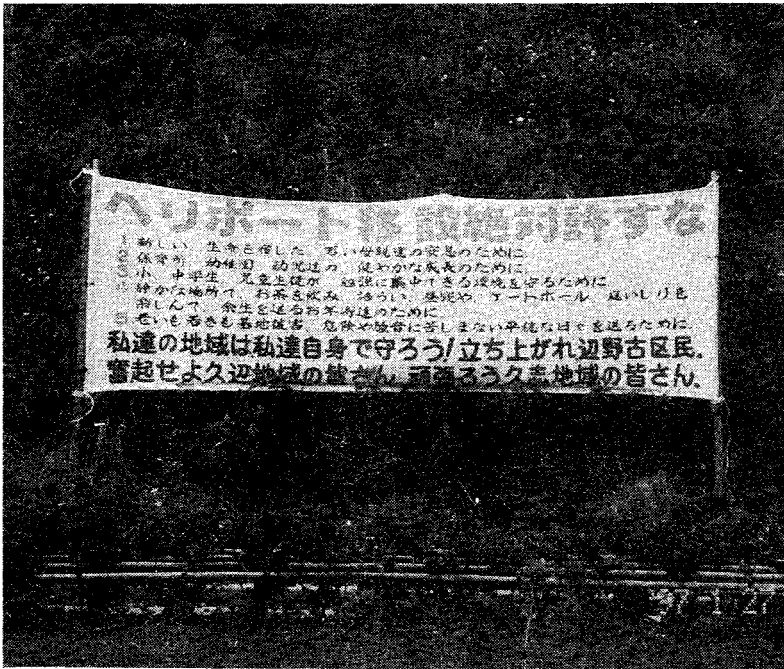 ヘリポート建設絶対許すな
1 新しい 生命を宿した 若い母親達の安息のために
2 保育所 幼稚園 幼児達の 健やかな成長のために
3 小 中学生 児童生徒が 勉強に集中できる環境を守るために
4 静かな場所で お茶を飲み 語らい、昼寝や ゲートボール 庭いじりを
楽しんで 余生を送るお年寄達のために
5 老いも若きも基地被害 危険や騒音に苦しまない平穏な日々を送るために.
私達の地域は私達自身で守ろう!立ち上がれ辺野古区民.
奮起せよ久辺地域の皆さん 頑張ろう久志地域の皆さん.
'97 1 27